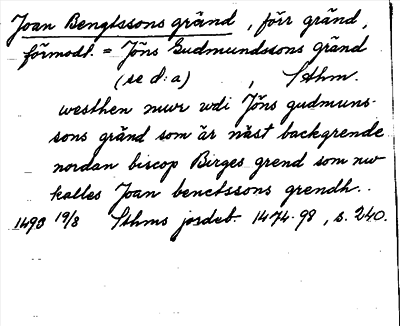 Joan Bengtssons gränd, förr gränd,
förmodl. = Jöns Gudmundssons gränd
(se d:a), Sthm.
westhen mwr wdi Jöns gudmuns-
sons gränd som är näst backgrende
nordan biscop Birges grend som nw
kalles Joan benctssons grendh..
1493 19/8 Sthms jordeb. 1474-98, s. 240.